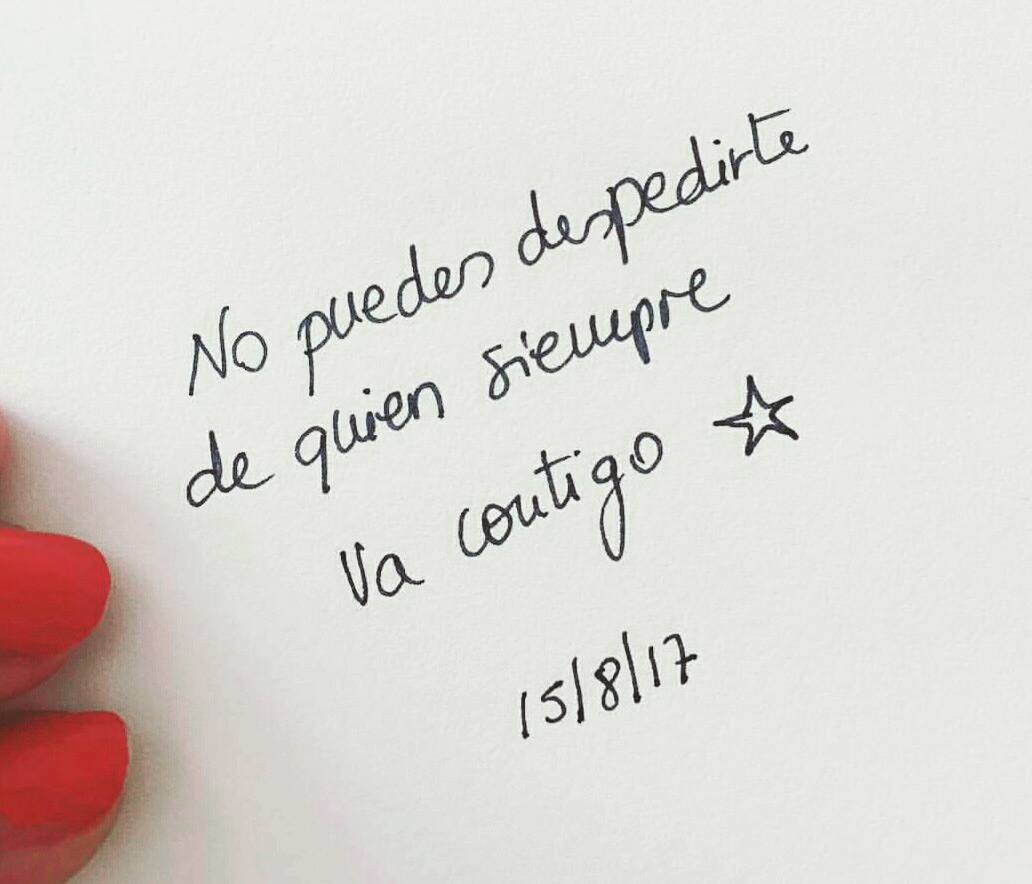 No puedes despedirte
de quien siempre
Va contigo ☆
15/8/17